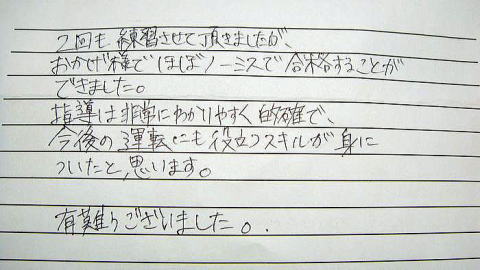 2回も練習させて頂きましたが、
おかげ様でほぼノーミスで合格することが
できました。
指導は非常にわかりやすく的確で、
今後の運転にも役立つスキルが身に
ついたと思います。
有難うございました。